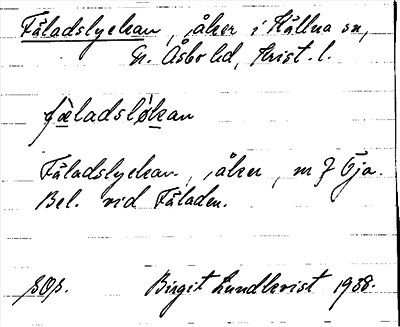 Fäladslyckan, åker i Källna sn,
N. Åsbo hd, Krist. l.
fæ̀ladslỳkan
Fäladslyckan, åker, n f Öja.
Bel. vid Fäladen.
Birgit Lundkvist 1938.